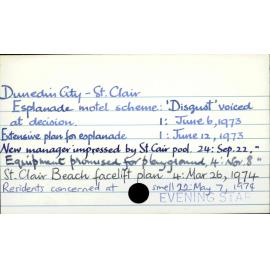 Dunedin City - St. Clair
Esplanade motel scheme: 'Disgust' voiced
at decision. 1: June 6, 1973
Extensive plan for esplanade 1: June 12, 1973
New manager impressed by St. Clair pool. 24: Sep. 22, "
Equipment promised for playground, 4: Nov. 8 "
St. Clair Beach facelift plan 4: Mar 26, 1974
Residents concerned at smell 22: May 7, 1974
EVENING STAR